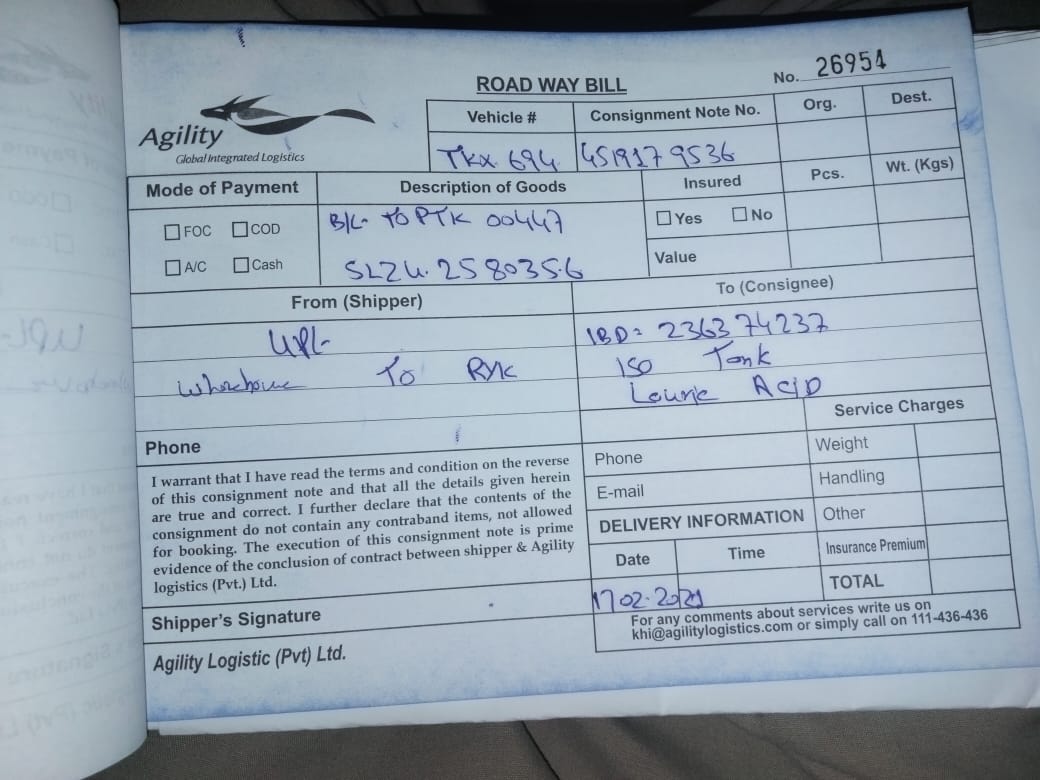 ROAD WAY BILL
No. 26954
Agility
Global Integrated Logistics
Vehicle #
Consignment Note No.
Org.
Dest.
TKX 694
4519179536
Pcs.
Wt. (Kgs)
Mode of Payment
Description of Goods
Insured
FOC COD
A/C Cash
B/L- TOPTK 00447
SLZU. 2580356
Yes No
Value
From (Shipper)
To (Consignee)
UPL-
To RYK
IBD= 236374237
ISO Tank
Lauric ACID
Phone
I warrant that I have read the terms and condition on the reverse
of this consignment note and that all the details given herein
are true and correct. I further declare that the contents of the
consignment do not contain any contraband items, not allowed
for booking. The execution of this consignment note is prime
evidence of the conclusion of contract between shipper & Agility
logistics (Pvt.) Ltd.
Phone
E-mail
Service Charges
Weight
Handling
Other
Insurance Premium
TOTAL
DELIVERY INFORMATION
Date
Time
17 02-2021
Shipper's Signature
For any comments about services write us on
khi@agilitylogistics.com or simply call on 111-436-436
Agility Logistic (Pvt) Ltd.